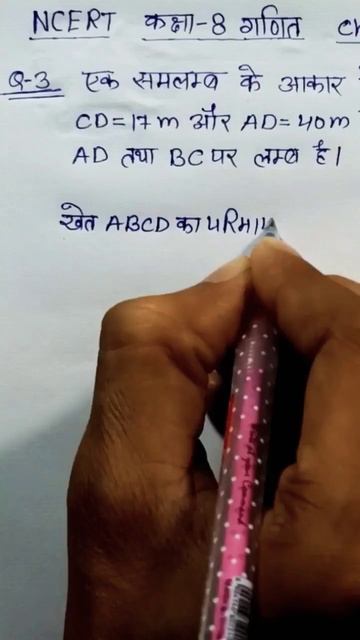 NCERT कक्षा-8 गणित
Q-3 एक समलम्ब के आकार
CD=17m और AD=40m
AD तथा BC पर लम्ब है।
खेत ABCD का